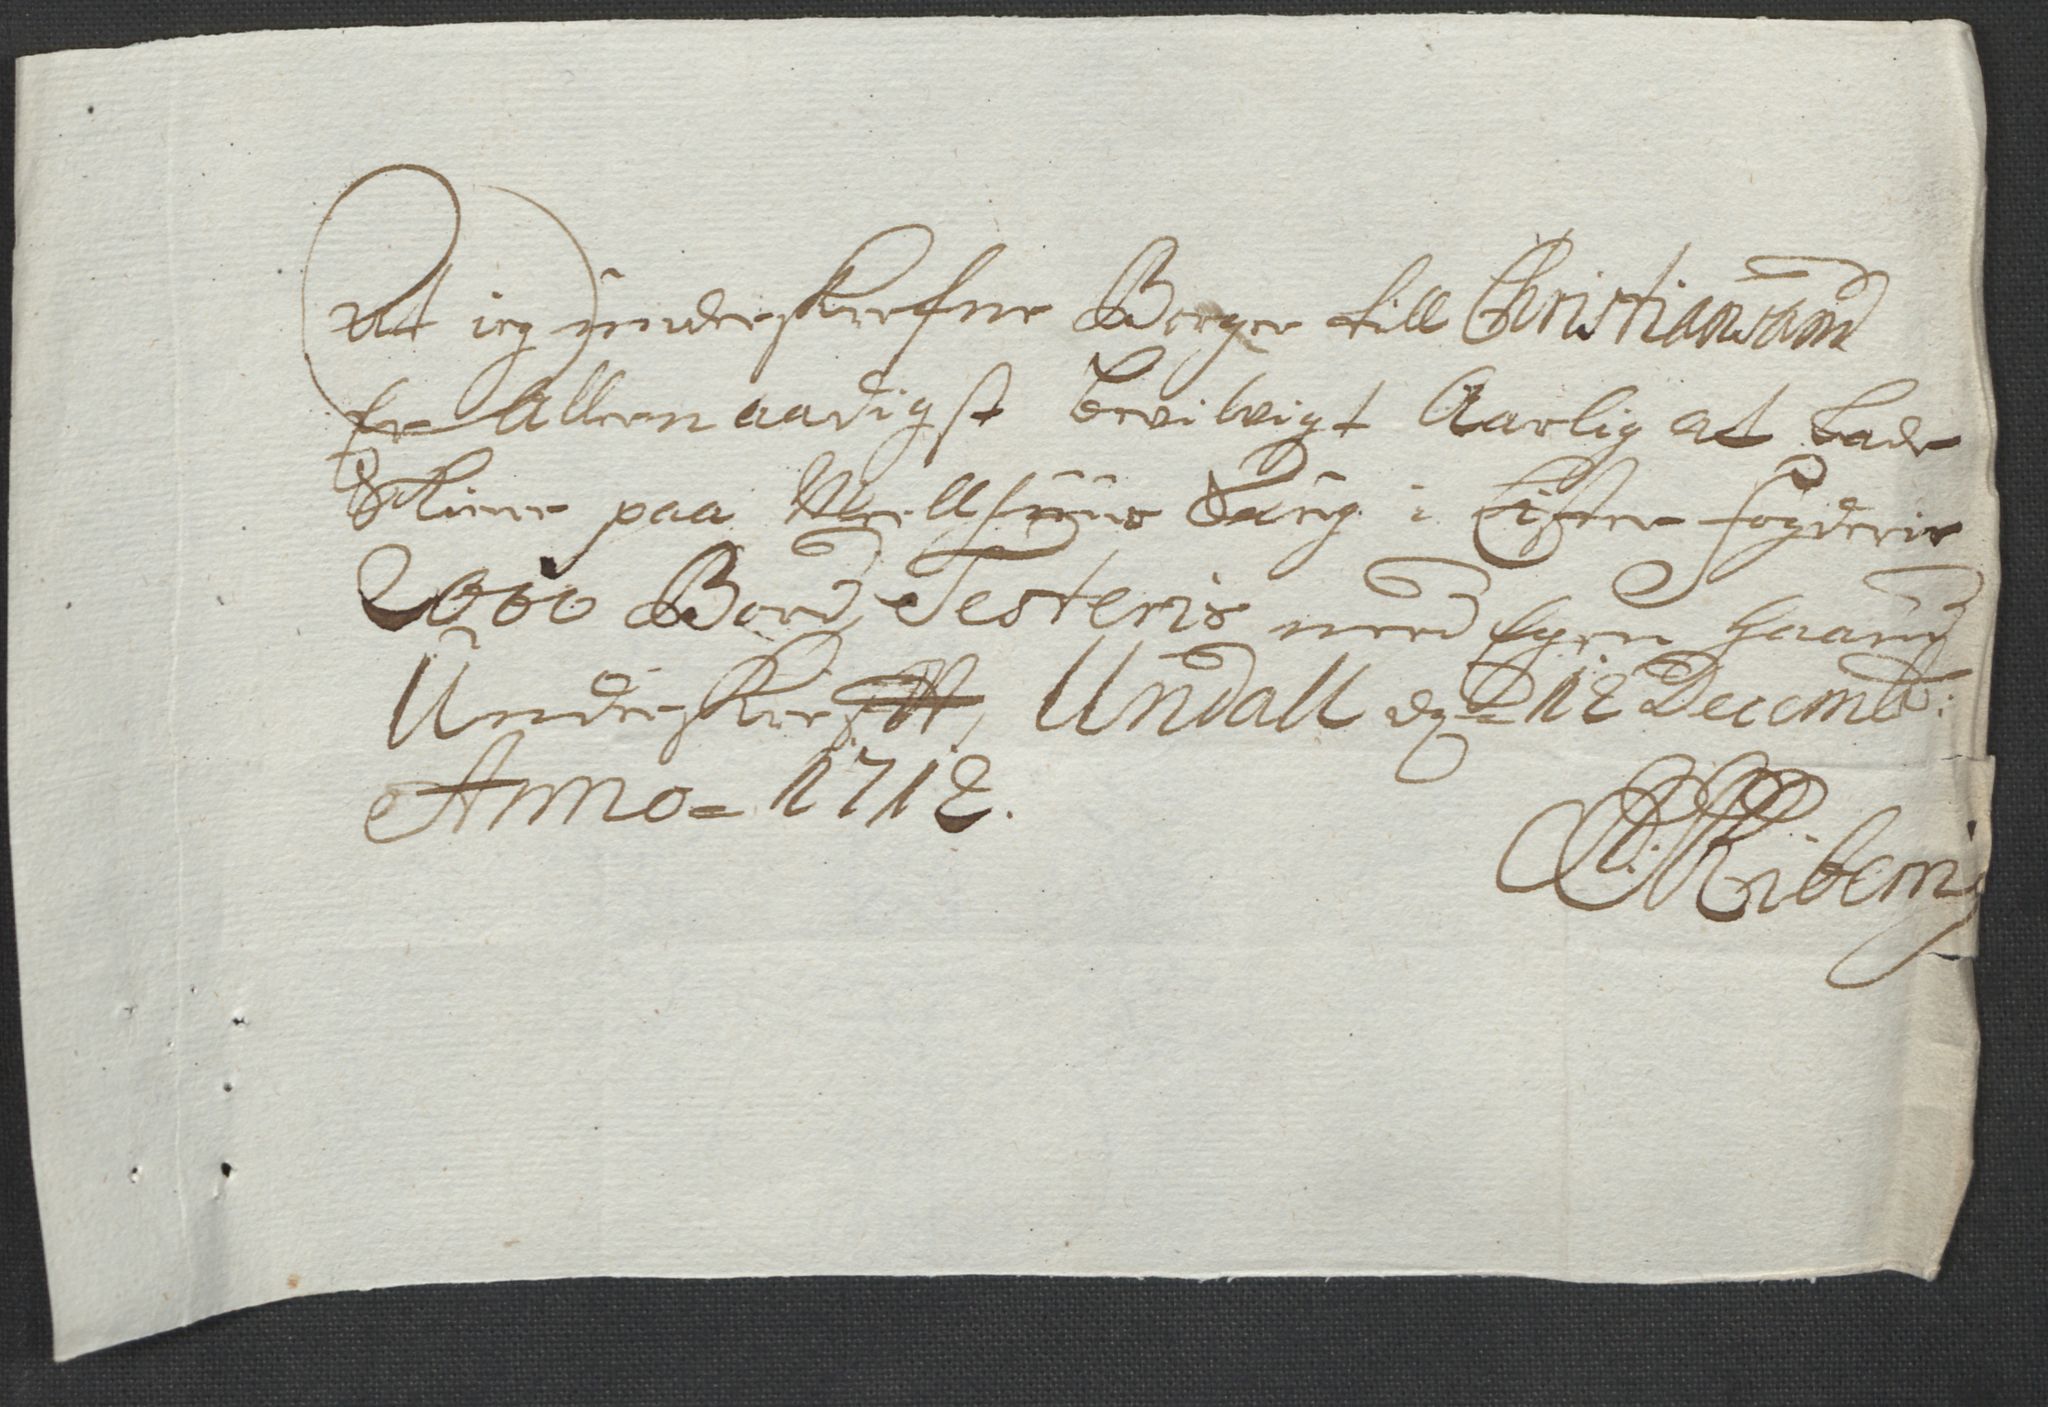 At ieg underskrefne Borger till Christiansand
Er Allernaadigst bevilvigt Aarlig at lade
Skiere paa Mellhuus Saug i Lister fogderie
2000 Bord, Testeris med Egen haand
Underskrefft, Undall dend 12 Decemb:
Anno = 1712.
Ribern